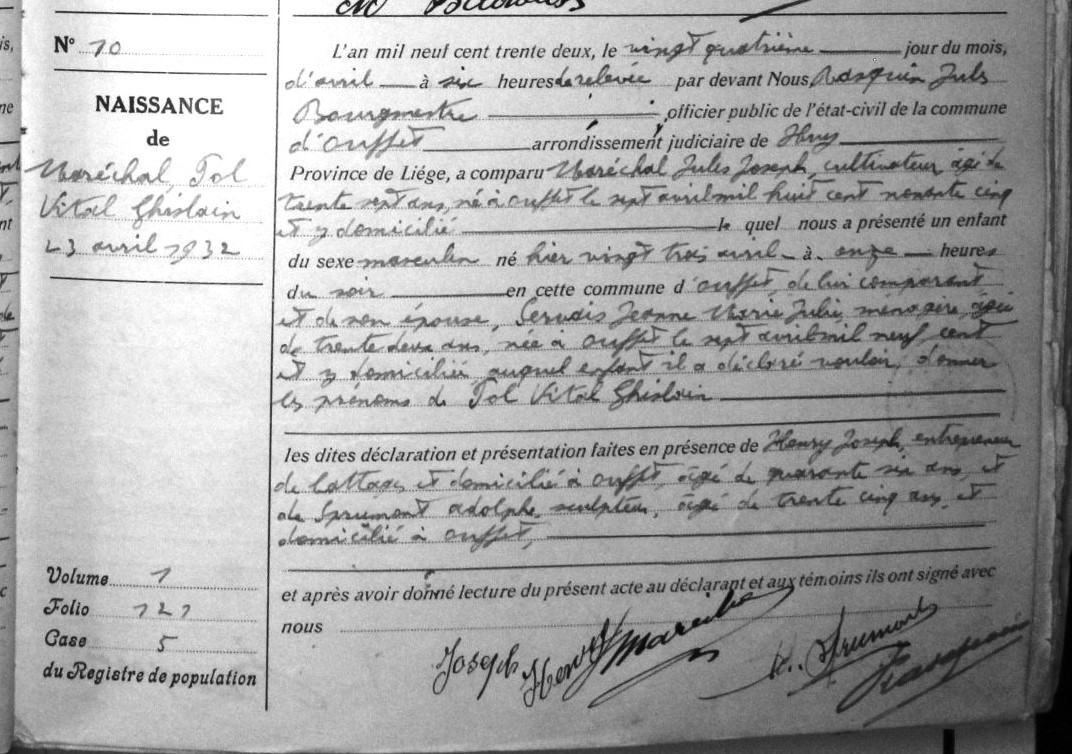 N° 10
NAISSANCE
de
Maréchal Pol
Vital Ghislain
23 avril 1932
L'an mil neuf cent trente deux, le vingt quatrième jour du mois,
d'avril à six heures de relevée par devant Nous, Rasquin Jules
Bourgmestre officier public de l'état-civil de la commune
d'Ouffet arrondissement judiciaire de Huy
Province de Liége, a comparu Maréchal Jules Joseph, cultivateur âgé de
trente sept ans, né à Ouffet le sept avril mil huit cent nonante cinq
et y domicilié le quel nous a présenté un enfant
du sexe masculin né hier vingt trois avril à onze heures
du soir en cette commune d'Ouffet, de lui comparant
et de son épouse, Servais Jeanne Marie Julie, ménagère, âgée
de trente deux ans, née à Ouffet le sept avril mil neuf cent
et y domiciliée auquel enfant il a déclaré vouloir donner
les prénoms de Pol Vital Ghislain
les dites déclaration et présentation faites en présence de Henry Joseph, entrepreneur
de battages et domicilié à Ouffet, âgé de quarante six ans, et
de Sprumont Adolphe, sculpteur, âgé de trente cinq ans, et
domicilié à Ouffet,
et après avoir donné lecture du présent acte au déclarant et aux témoins ils ont signé avec
nous
Joseph Henry J Maréchal A. Sprumont
Rasquin
Volume 1
Folio 121
Case 5
du Registre de population